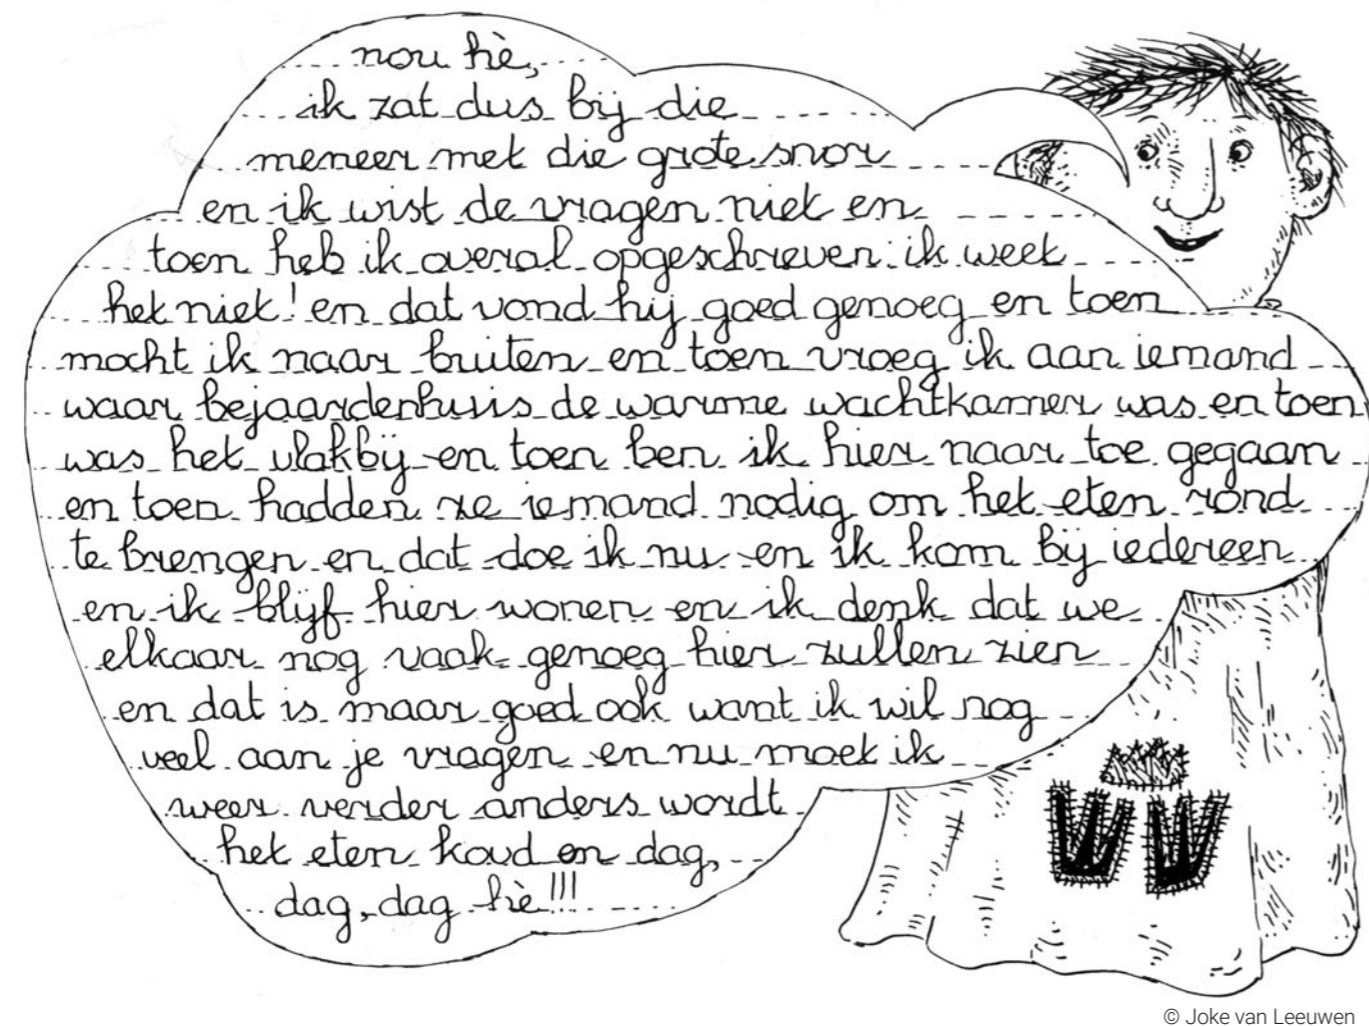 nou hè,
ik zat dus bij die
meneer met die grote snor
en ik wist de vragen niet en
toen heb ik overal opgeschreven: ik weet
het niet! en dat vond hij goed genoeg en toen
mocht ik naar buiten en toen vroeg ik aan iemand
waar bejaardenhuis de warme wachtkamer was en toen
was het vlakbij en toen ben ik hier naar toe gegaan
en toen hadden ze iemand nodig om het eten rond
te brengen en dat doe ik nu en ik kom bij iedereen
en ik blijf hier wonen en ik denk dat we
elkaar nog vaak genoeg hier zullen zien
en dat is maar goed ook want ik wil nog
veel aan je vragen en nu moet ik
weer verder anders wordt
het eten koud en dag,
dag, dag hè!!!
WW
© Joke van Leeuwen